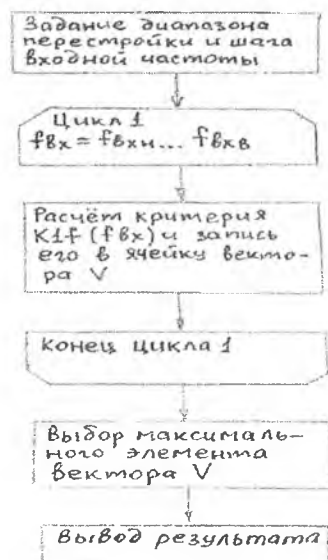 Задание диапазона
перестройки и шага
входной частоты
Цикл 1
fвх = fвхн... fвхв
Расчёт критерия
К1f (fвх) и запись
его в ячейку векто-
ра V
Конец цикла 1
Выбор максималь-
ного элемента
вектора V
Вывод результата